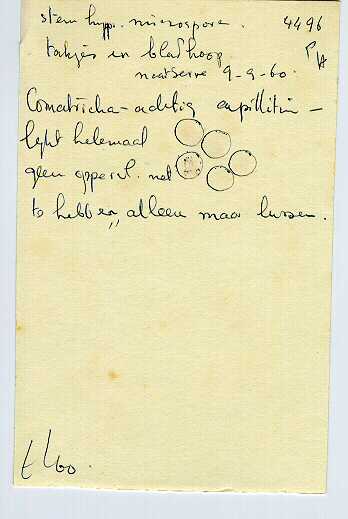 stem hyp. microspora. 4496
takjes en bladhoop
naast serre 9-9-60.
Comatricha-achtig capillitium -
lijkt helemaal
geen oppervl. net
te hebben, alleen maar lussen.